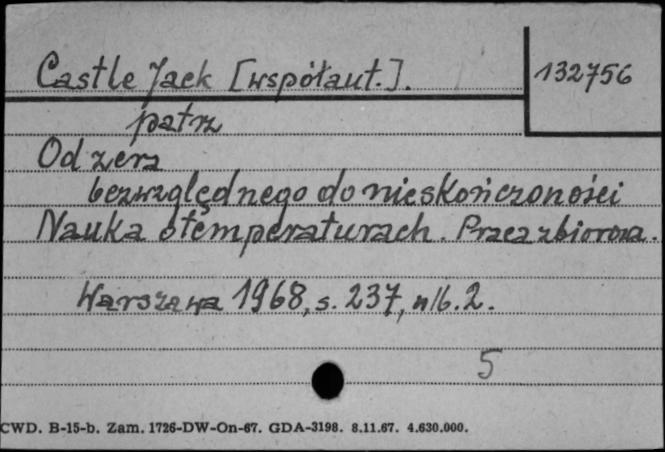 Castle Jack [współaut.].
132756
patrz
Od zera
bezwzględnego do nieskończoności
Nauka o temperaturach. Praca zbiorowa.
Warszawa 1968, s. 237, nlb. 2.
5
CWD. B-15-b. Zam. 1726-DW-On-67. GDA-3198. 8.11.67. 4.630.000.